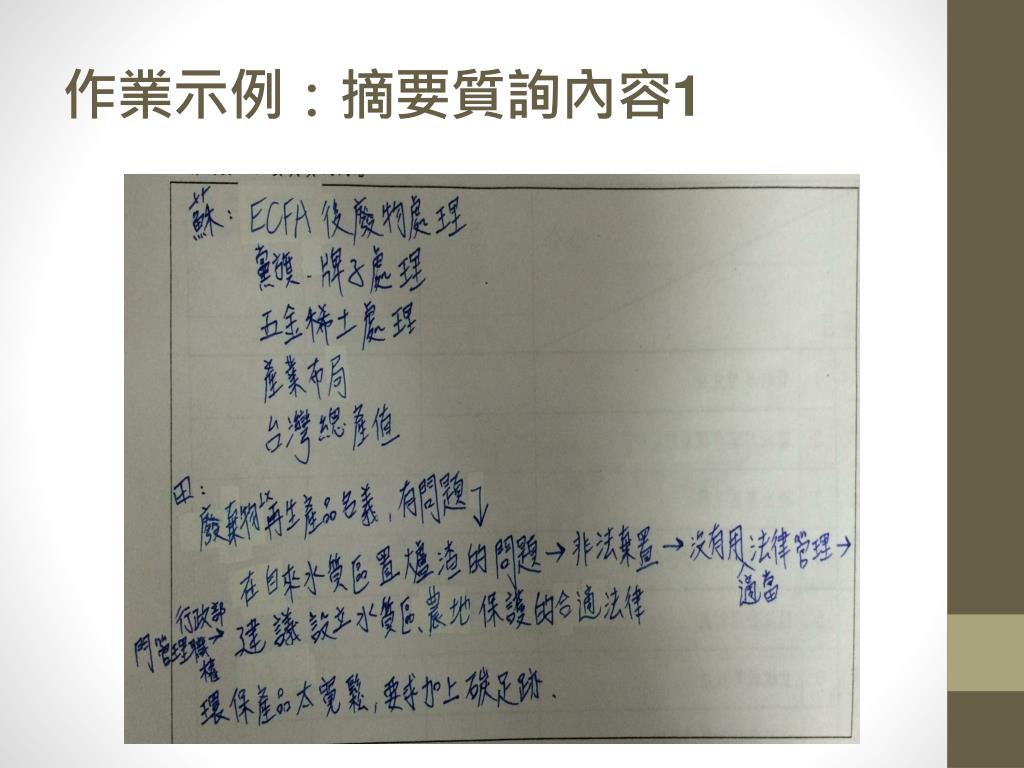 作業示例：摘要質詢內容1
蘇：ECFA 後廢物處理
黨旗、牌子處理
五金稀土處理
產業布局
台灣總產值
田：
廢棄物以再生產品名義，有問題
在自來水質區置爐渣的問題→非法棄置→沒有用法律管理→
適當
行政部門管理職權→
建議設立水質區、農地保護的合適法律
環保產品太寬鬆，要求加上碳足跡.